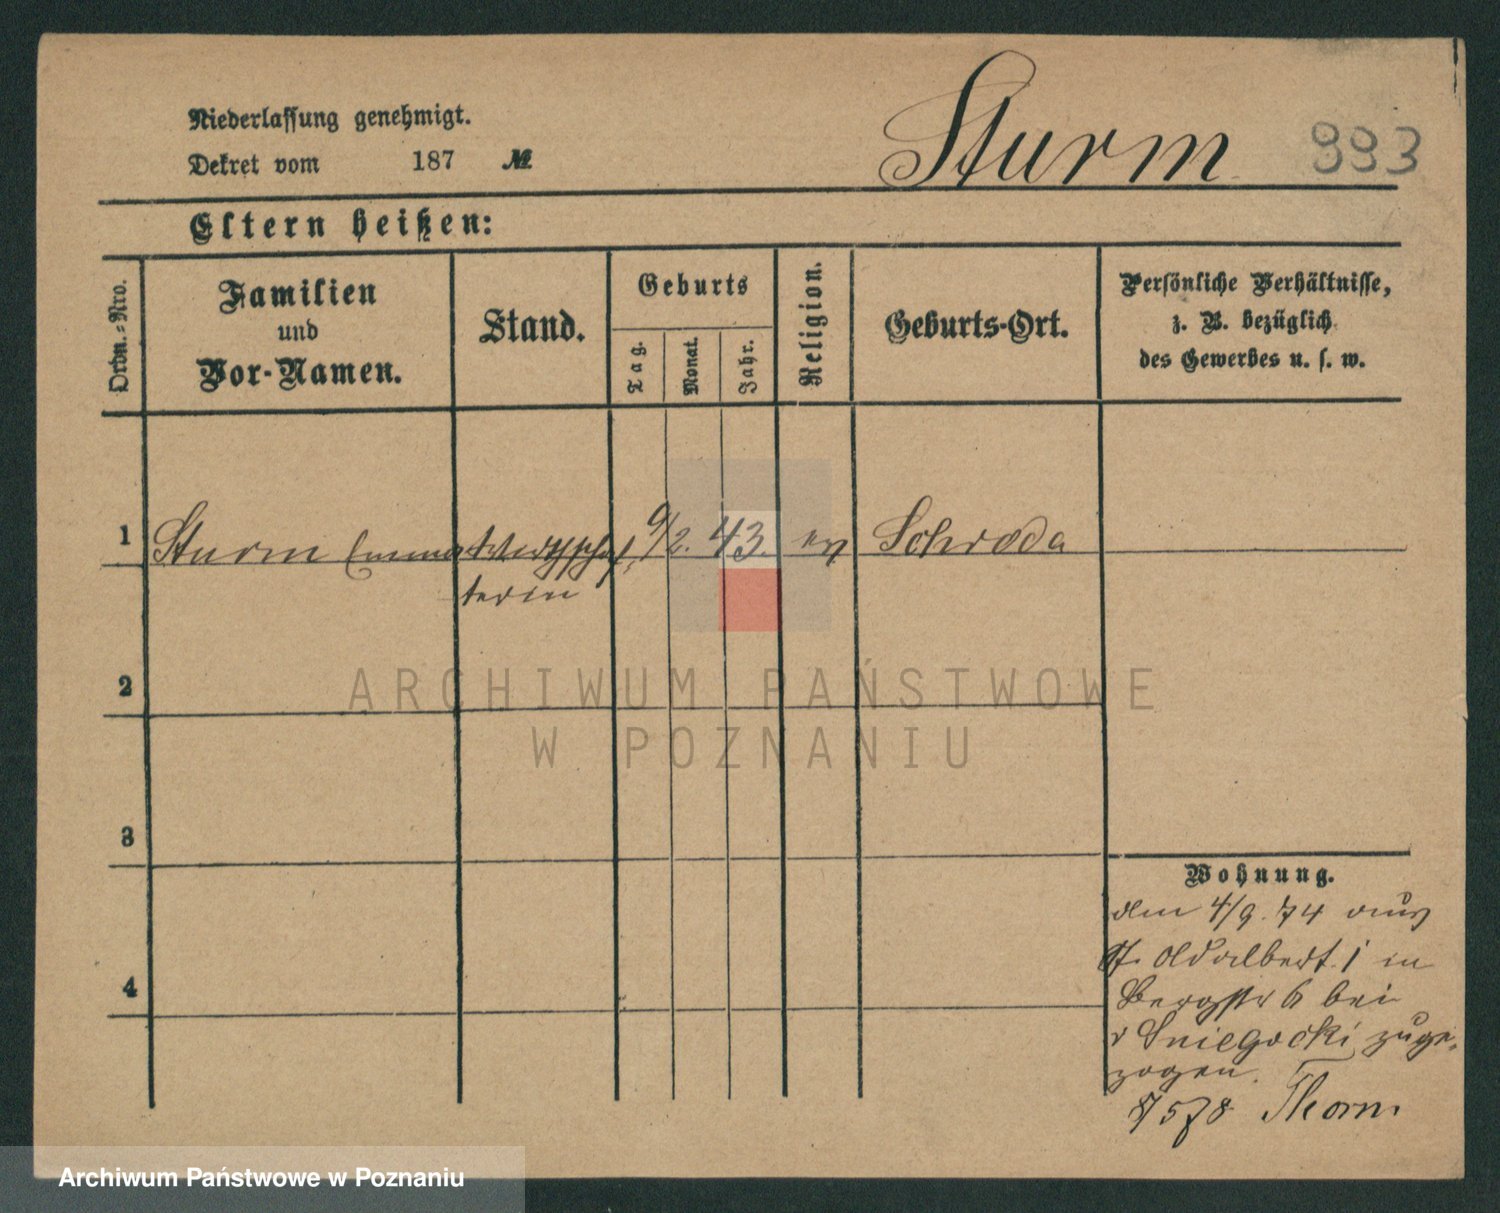 Niederlassung genehmigt.
Dekret vom 187 №
Sturm 993
Eltern heißen:
Ordn.=Nro.
Familien
und
Vor-Namen.
Stand.
Geburts
Tag.
Monat.
Jahr.
Religion.
Geburts-Ort.
Persönliche Verhältnisse,
z. B. bezüglich
des Gewerbes u. s. w.
1 Sturm Emma Wirthschaf 9/2. 43. ev Schroda
terin
2
3
4
Wohnung.
den 4/9. 74 aus
St. Adalbert. 1 in
Bergstr 6 bei
v Sniegocki zuge-
zogen.
8/5 78 Thorn
ARCHIWUM PAŃSTWOWE
W POZNANIU
Archiwum Państwowe w Poznaniu